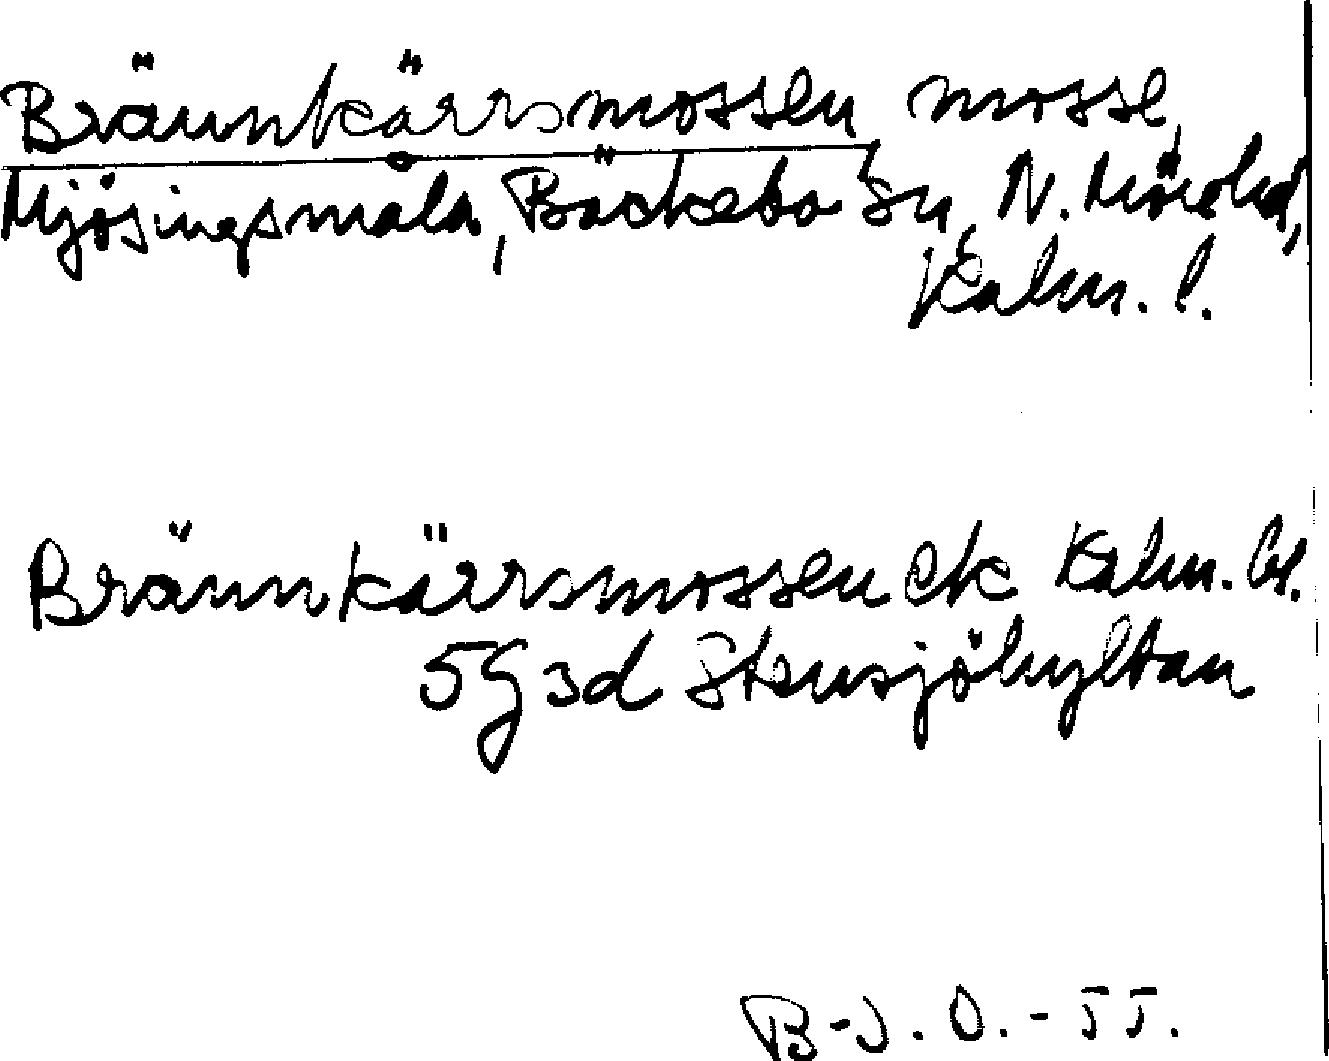 Brännkärrsmossen, mosse,
Mjösingsmåla, Bäckebo sn, N. Möre hd,
Kalm. l.
Brännkärrsmossen ek Kalm. bl.
5G3d Stensjöhyltan
B-J. O. - 55.